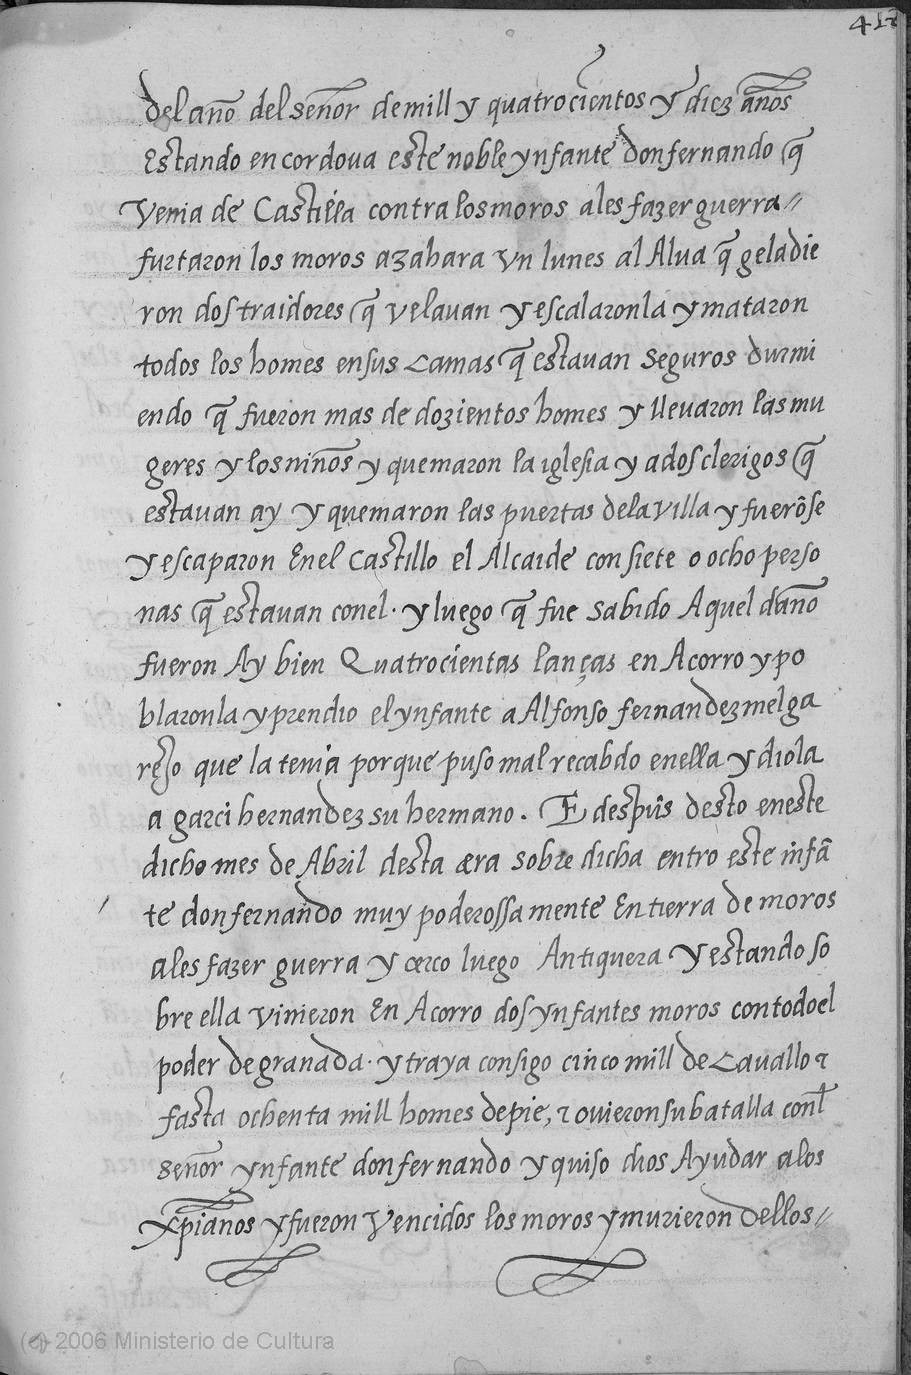 417
del año del señor de mill y quatrocientos y diez años
Estando en cordova este noble ynfante don fernando q̃
venia de Castilla contra los moros a les fazer guerra //
furtaron los moros azahara vn lunes al Alua q̃ gela die
ron dos traidores q̃ velauan y escalaronla y mataron
todos los homes en sus camas q̃ estauan seguros durmi
endo q̃ fueron mas de dozientos homes y lleuaron las mu
geres y los niños y quemaron la iglesia y a dos clerigos q̃
estauan ay y quemaron las puertas de la villa y fuerõse
y escaparon En el castillo el Alcaide con siete o ocho perso
nas q̃ estauan con el. y luego q̃ fue sabido Aquel daño
fueron Ay bien Quatrocientas lanças en Acorro y po
blaronla y prendio el ynfante a Alfonso fernandez melga
rejo que la tenia porque puso mal recabdo en ella y diola
a garci hernandez su hermano. E despũs desto en este
dicho mes de Abril desta æra sobre dicha entro este infã
te don fernando muy poderossamente En tierra de moros
a les fazer guerra y cerco luego Antiquera y estando so
bre ella vinieron En Acorro dos ynfantes moros con todo el
poder de granada. y traya consigo cinco mill de cauallo ⁊
fasta ochenta mill homes de pie, ⁊ ouieron su batalla conl̃
señor ynfante don fernando y quiso dios Ayudar a los
xp̃ianos y fueron vencidos los moros y murieron dellos //
(c) 2006 Ministerio de Cultura